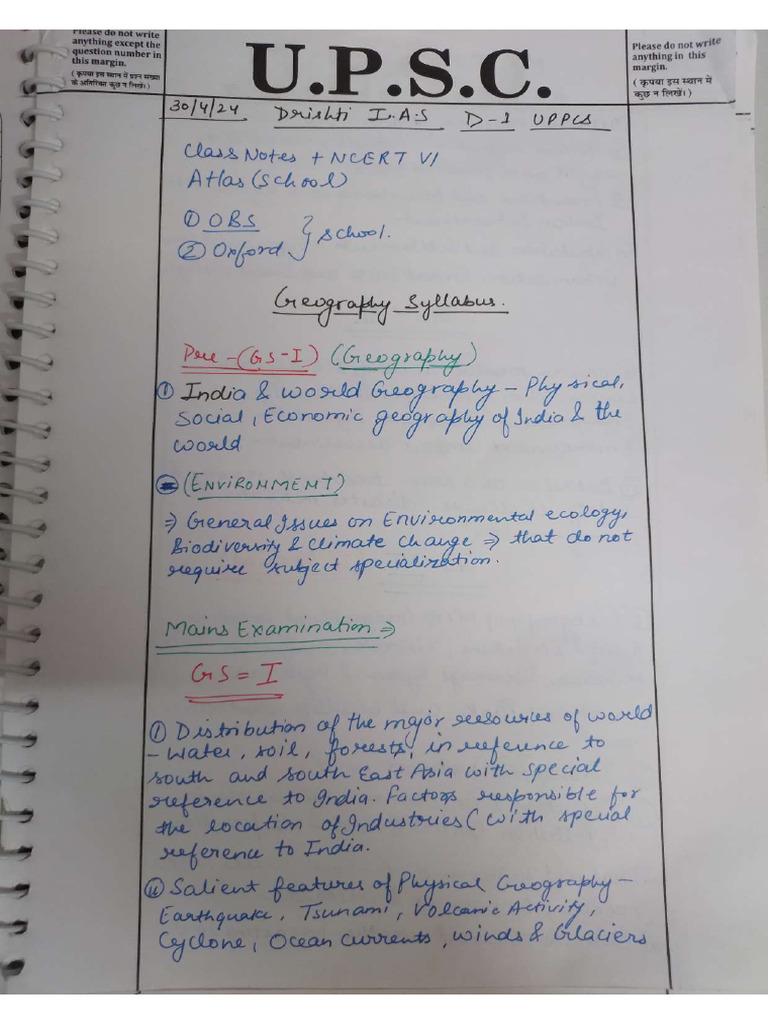 Please do not write
anything except the
question number in
this margin.
( कृपया इस स्थान में प्रश्न संख्या
के अतिरिक्त कुछ न लिखें।)
U.P.S.C.
Please do not write
anything in this
margin.
( कृपया इस स्थान में
कुछ न लिखें।)
30/4/24 Drishti I.A.S D-1 UPPCS
Class Notes + NCERT VI
Atlas (School)
① OBS
② Oxford } school.
Geography Syllabus.
Pre-(GS-I) (Geography)
① India & world Geography - Physical,
Social, Economic geography of India & the
world
(ENVIRONMENT)
⇒ General Issues on Environmental ecology,
Biodiversity & Climate Change ⇒ that do not
require subject specialization.
Mains Examination ⇒
GS = I
① Distribution of the major resources of world
- water, soil, forests, in reference to
south and south East Asia with special
reference to India. Factors responsible for
the location of Industries (with special
reference to India.
ⅱ Salient features of Physical Geography -
Earthquake, Tsunami, Volcanic Activity,
Cyclone, Ocean currents, winds & Glaciers